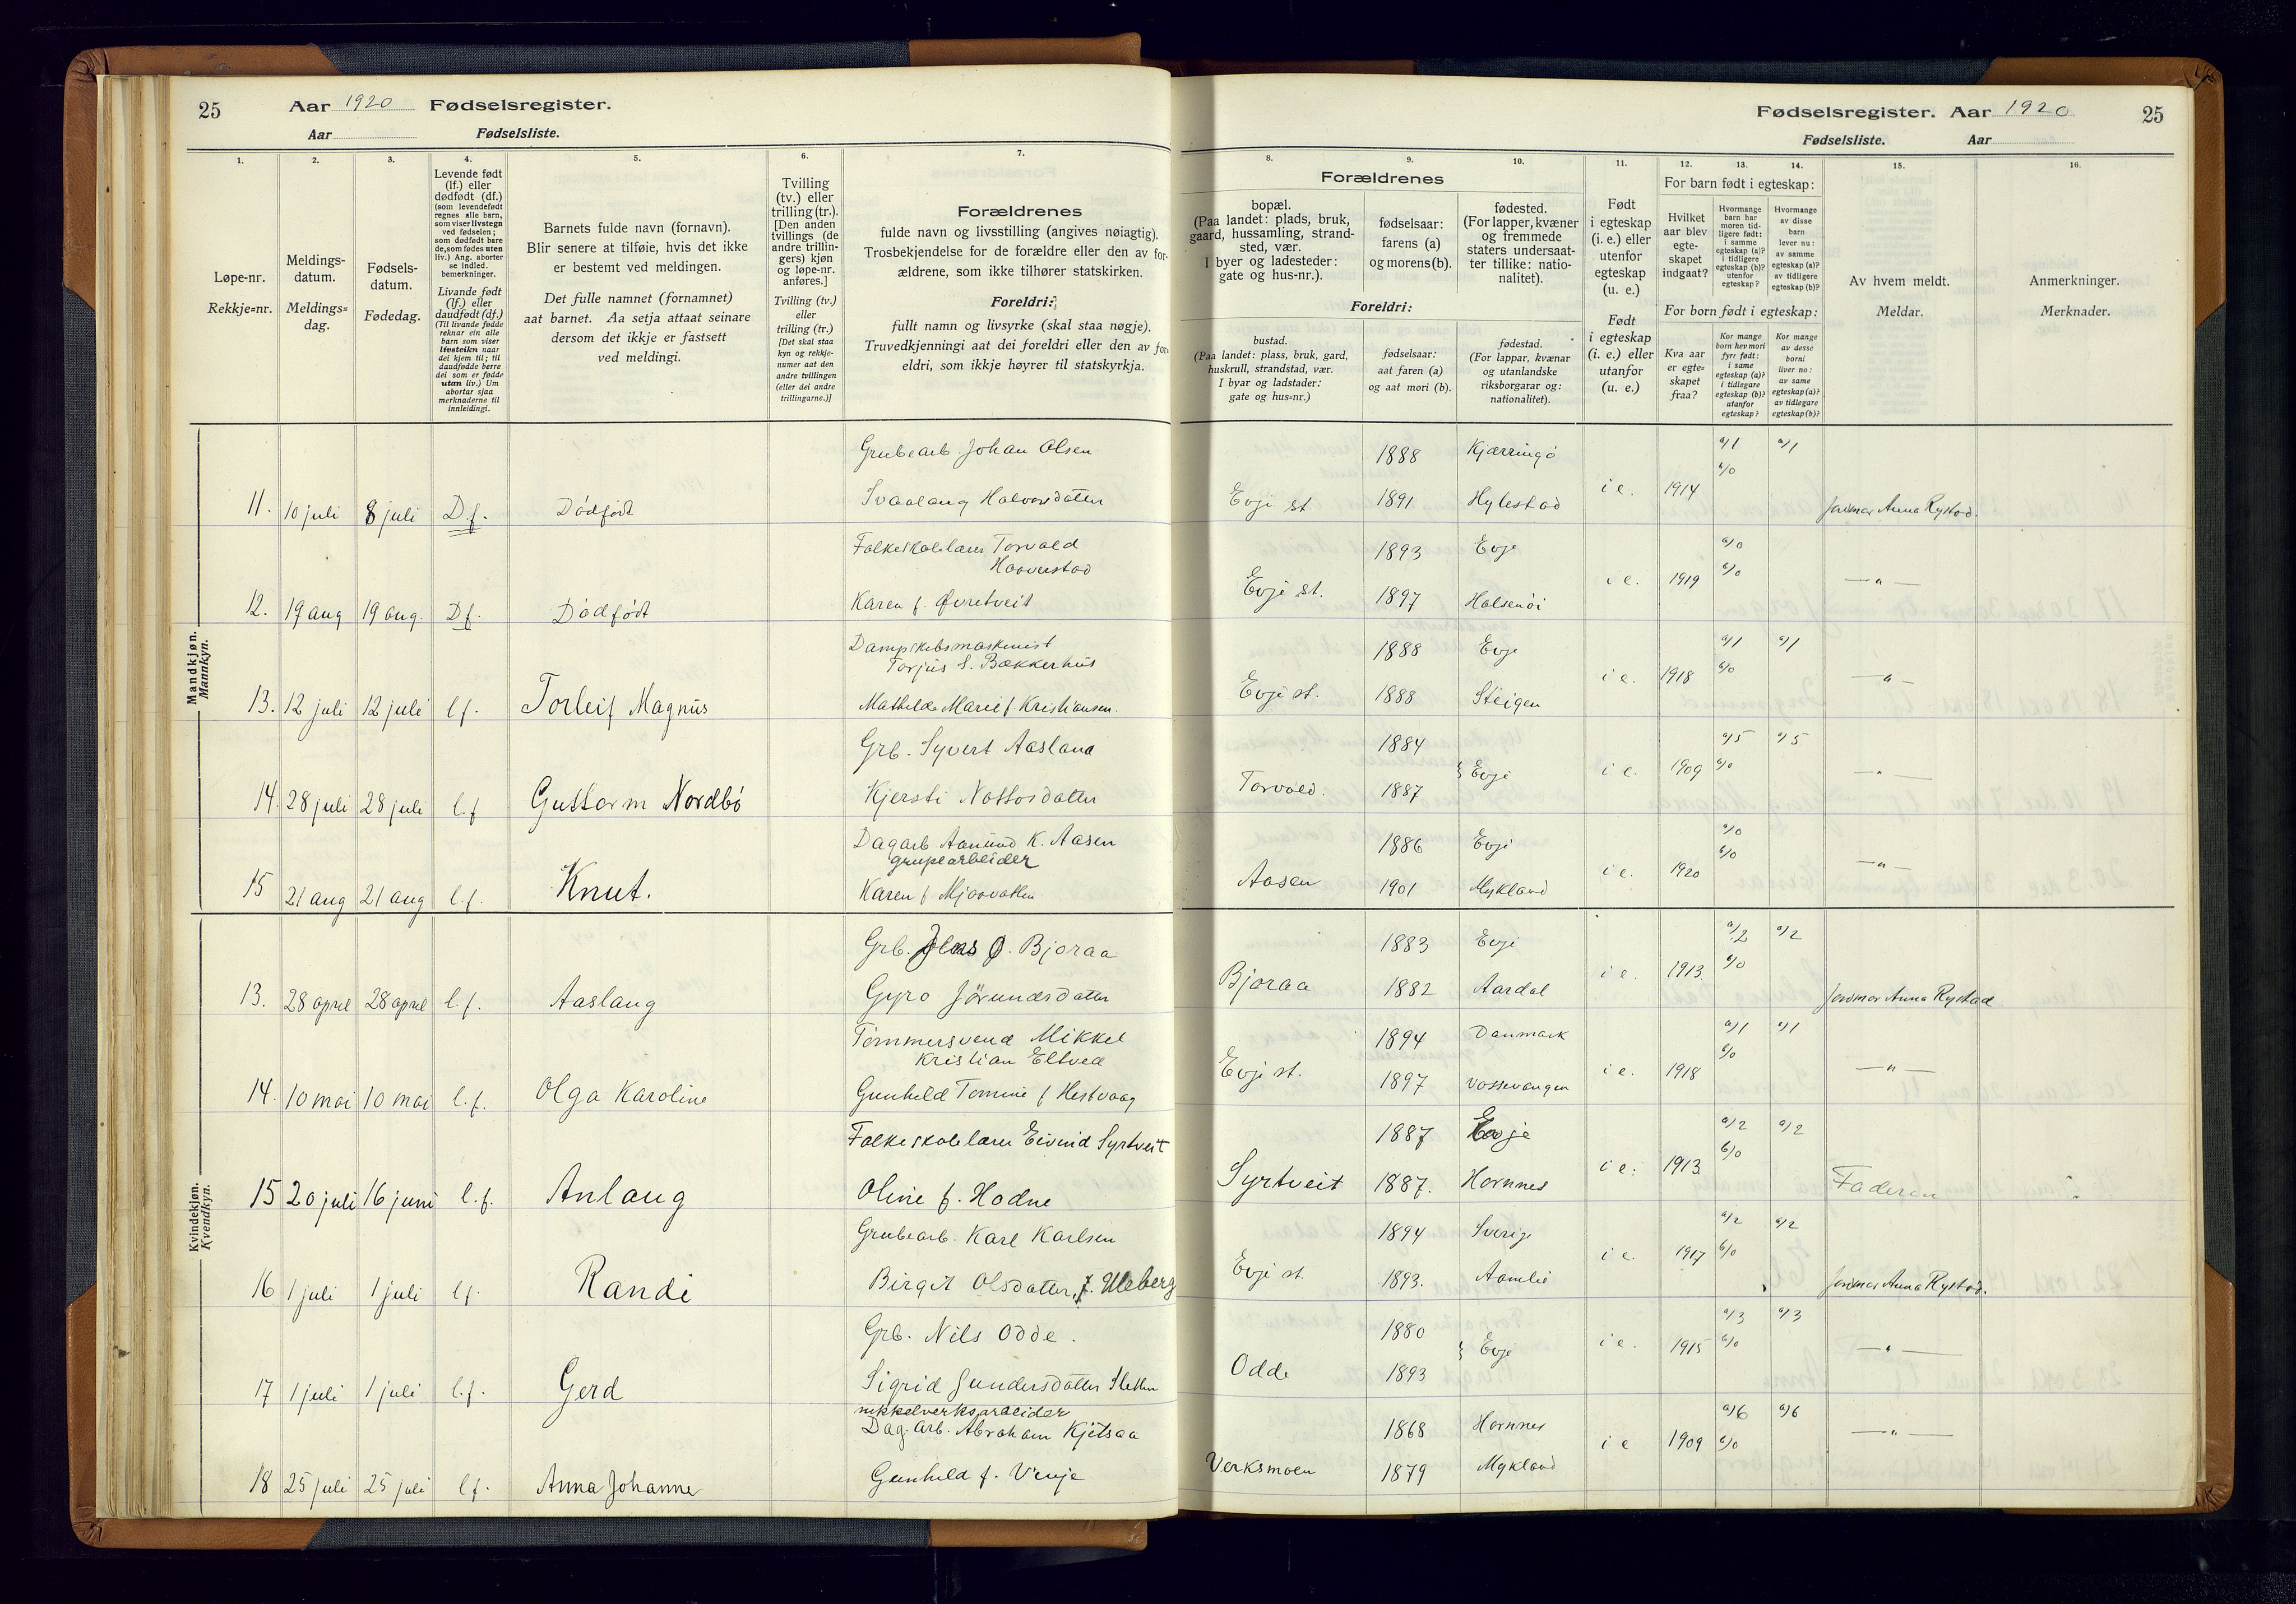 25 Aar 1920 Fødselsregister.
Aar Fødselsliste.
Fødselsregister. Aar 1920 25
Fødselsliste. Aar
1. 2. 3. 4. 5. 6. 7.
Løpe-nr.
Rekkje=nr.
Meldings-
datum.
Meldings=
dag.
Fødsels-
datum.
Fødedag.
Levende født
(lf.) eller
dødfødt (df.)
(som levendefødt
regnes alle barn,
som viser livstegn
ved fødselen;
som dødfødt bare
de, som fødes uten
liv.) Ang. aborter
se indled.
bemerkninger.
Livande født
(lf.) eller
daudfødt (df.)
(Til livande fødde
reknar ein alle
barn som viser
livsteikn naar
dei kjem til; til
daudfødde berre
dei som er fødde
utan liv.) Um
abortar sjaa
merknaderne til
innleidingi.
Barnets fulde navn (fornavn).
Blir senere at tilføie, hvis det ikke
er bestemt ved meldingen.
Det fulle namnet (fornamnet)
aat barnet. Aa setja attaat seinare
dersom det ikkje er fastsett
ved meldingi.
Tvilling
(tv.) eller
trilling (tr.).
[Den anden
tvillings (de
andre trillin-
gers) kjøn
og løpe-nr.
anføres.]
Tvilling (tv.)
eller
trilling (tr.)
[Det skal staa
kyn og rekkje-
numer aat den
andre tvillingen
(eller dei andre
trillingarne.)]
Forældrenes
fulde navn og livsstilling (angives nøiagtig).
Trosbekjendelse for de forældre eller den av for-
ældrene, som ikke tilhører statskirken.
Foreldri:
fullt namn og livsyrke (skal staa nøgje).
Truvedkjenningi aat dei foreldri eller den av for=
eldri, som ikkje høyrer til statskyrkja.
8. 9. 10. 11. 12. 13. 14. 15. 16.
Forældrenes
bopæl.
(Paa landet: plads, bruk,
gaard, hussamling, strand-
sted, vær.
I byer og ladesteder:
gate og hus-nr.).
fødselsaar:
farens (a)
og morens (b).
fødested.
(For lapper, kvæner
og fremmede
staters undersaat-
ter tillike: natio-
nalitet).
Foreldri:
bustad.
(Paa landet: plass, bruk, gard,
huskrull, strandstad, vær.
I byar og ladstader:
gate og hus=nr.)
fødselsaar:
aat faren (a)
og aat mori (b).
fødestad.
(For lappar, kvænar
og utanlandske
riksborgarar og:
nationalitet).
Født
i egteskap
(i. e.) eller
utenfor
egteskap
(u. e.)
Født
i egteskap
(i. e.) eller
utanfor
(u. e.)
For barn født i egteskap:
Hvilket
aar blev
egte-
skapet
indgaat?
Hvormange
barn har
moren tid-
ligere født:
i samme
egteskap (a)?
i tidligere
egteskap (b)?
utenfor
egteskap?
Hvormange
av disse
barn
lever nu:
av samme
egteskap (a)?
av tidligere
egteskap (b)?
For born født i egteskap:
Kva aar
er egte=
skapet
fraa?
Kor mange
born hev mori
fyrr født:
i same
egteskap (a)?
i tidlegare
egteskap (b)?
utanfor
egteskap?
Kor mange
av desse
borni
liver no:
av same
egteskap (a)?
av tidlegare
egteskap (b)?
Av hvem meldt.
Meldar.
Anmerkninger.
Merknader.
Mandkjøn.
Mannkyn.
Grubearb. Johan Olsen 1888 Kjærringö a/1 a/1
b/0
11. 10 juli 8 juli D.f. Dödfödt Svaalaug Halvorsdatter Evje st 1891 Hylestad i e. 1914 Jordmor Anna Rystad.
Folkeskolelærer Torvald 1893 Evje a/0
Haaverstad b/0
12. 19 aug 19 aug. D.f. Dödfödt Karen f. Øvretveit Evje st. 1897 Halsenöi i e. 1919 — " —
Dampskibsmaskinist 1888 Evje a/1 a/1
Torjus S. Bakkerhus b/0
13. 12 juli 12 juli l f. Torleif Magnus Mathilde Marie f. Kristiansen. Evje st. 1888 Steigen i e. 1918 — " —
Grb. Syvert Aasland 1884 a/5 a/5
14. 28 juli 28 juli l. f Guttorm Nordbö Kjersti Nottosdatter Torvold. 1887 } Evje i e. 1909 b/0 — " —
Dagarb Aanund K. Aasen 1886 Evje a/0
grupearbeider b/0
15 21 aug 21 aug l. f. Knut. Karen f Mjaavatten Aasen 1901 Mykland i e. 1920 — " —
Kvindekjøn.
Kvendkyn.
Grb. Jens O. Bjoraa 1883 Evje a/2 a/2
b/0
13. 28 april 28 april l. f. Aaslaug Gyro Jörundsdatter Bjoraa 1882 Aardal i e. 1913. Jordmor Anna Rystad
Tömmersvend Mikkel 1894 Danmark a/1 a/1
Kristian Eltved b/0
14. 10 mai 10 mai l. f. Olga Karoline Gunhild Tomine f Hestvaag Evje st. 1897 Vossevangen i e. 1918 — " —
Folkeskolelærer Eivind Syrtveit 1887 Evje a/2 a/2
b/0
15 20 juli 16 juni l. f. Anlaug Oline f. Hodne Syrtveit 1887. Hornnes i e. 1913. Faderen
Grubearb. Karl Karlsen 1894 Sverige a/2 a/2
16 1 juli 1 juli l f. Randi Birgit Olsdatter, f. Uleberg Evje st. 1893. Aamli i e. 1917 b/0 Jordmor Anna Rystad.
Grb. Nils Odde. 1880 a/3 a/3
17 1 juli 1 juli l. f. Gerd Sigrid Gundersdatter Sletten Odde 1893 } Evje i e. 1915 b/0 — " —
nikkelverksarbeider
Dag. arb. Abraham Kjetsaa 1868 Hornnes a/6 a/6
18 25 juli 25 juli l f. Anna Johanne Gunhild f. Verksmoen 1879 Mykland i e 1909 b/0 — " —